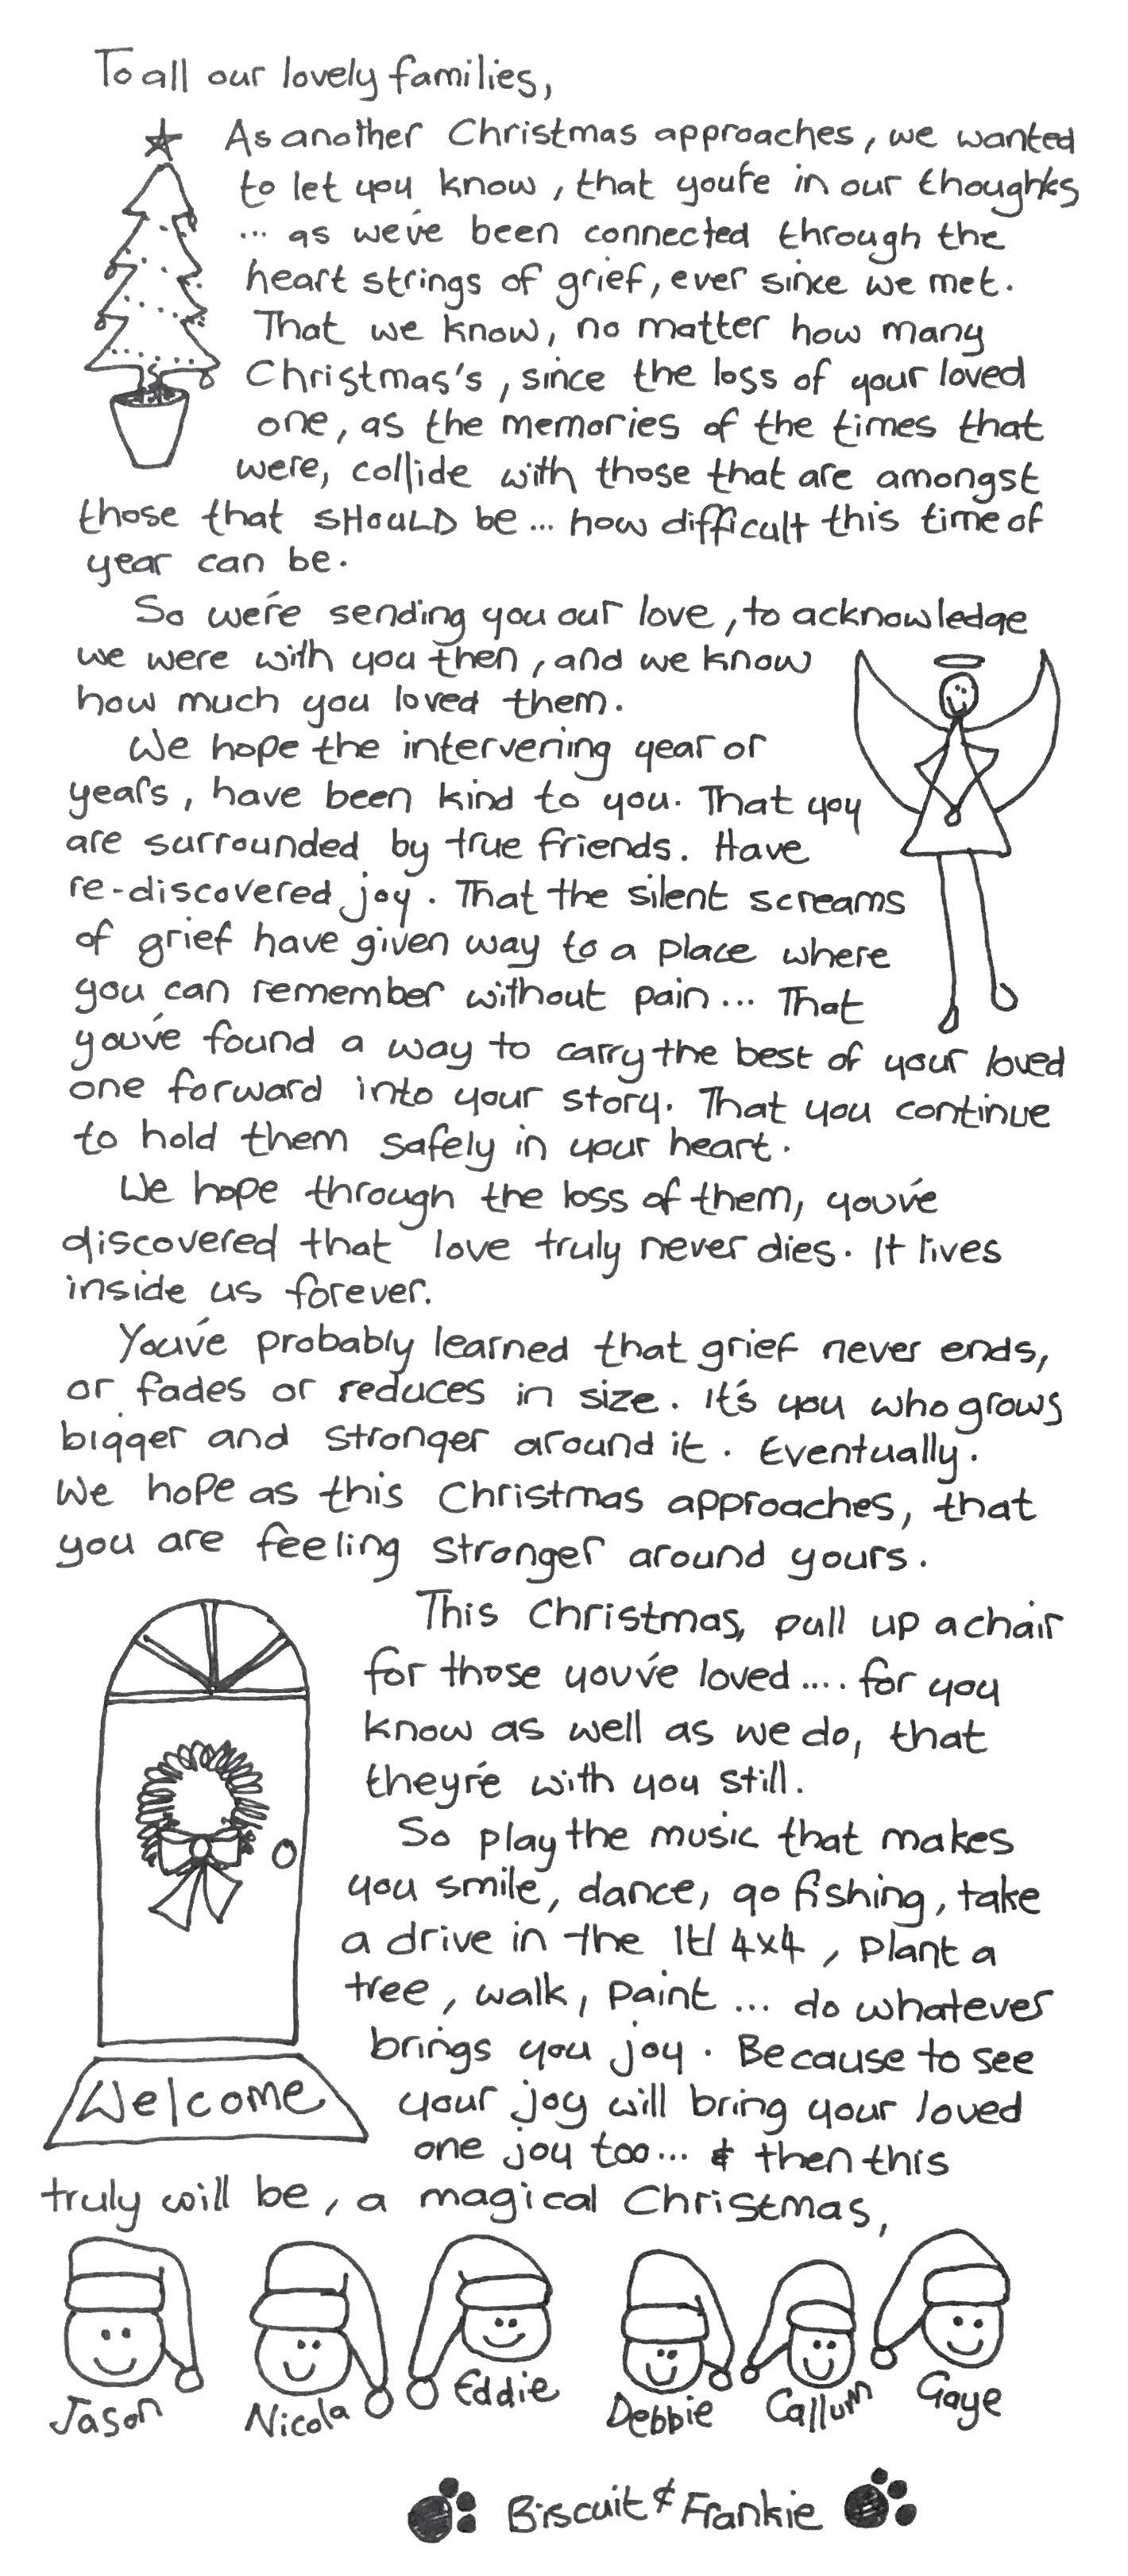 To all our lovely families,
As another Christmas approaches, we wanted
to let you know, that you're in our thoughts
... as we've been connected through the
heart strings of grief, ever since we met.
That we know, no matter how many
Christmas's, since the loss of your loved
one, as the memories of the times that
were, collide with those that are amongst
those that SHOULD be... how difficult this time of
year can be.
So we're sending you our love, to acknowledge
we were with you then, and we know
how much you loved them.
We hope the intervening year or
years, have been kind to you. That you
are surrounded by true friends. Have
re-discovered joy. That the silent screams
of grief have given way to a place where
you can remember without pain... That
you've found a way to carry the best of your loved
one forward into your story. That you continue
to hold them safely in your heart.
We hope through the loss of them, you've
discovered that love truly never dies. It lives
inside us forever.
You've probably learned that grief never ends,
or fades or reduces in size. It's you who grows
bigger and stronger around it. Eventually.
We hope as this Christmas approaches, that
you are feeling stronger around yours.
This Christmas, pull up a chair
for those you've loved.... for you
know as well as we do, that
they're with you still.
So play the music that makes
you smile, dance, go fishing, take
a drive in the 4x4, plant a
tree, walk, paint... do whatever
brings you joy. Because to see
your joy will bring your loved
one joy too... & then this
Welcome
truly will be, a magical Christmas,
Jason Nicola Eddie Debbie Callum Gaye
Biscuit & Frankie